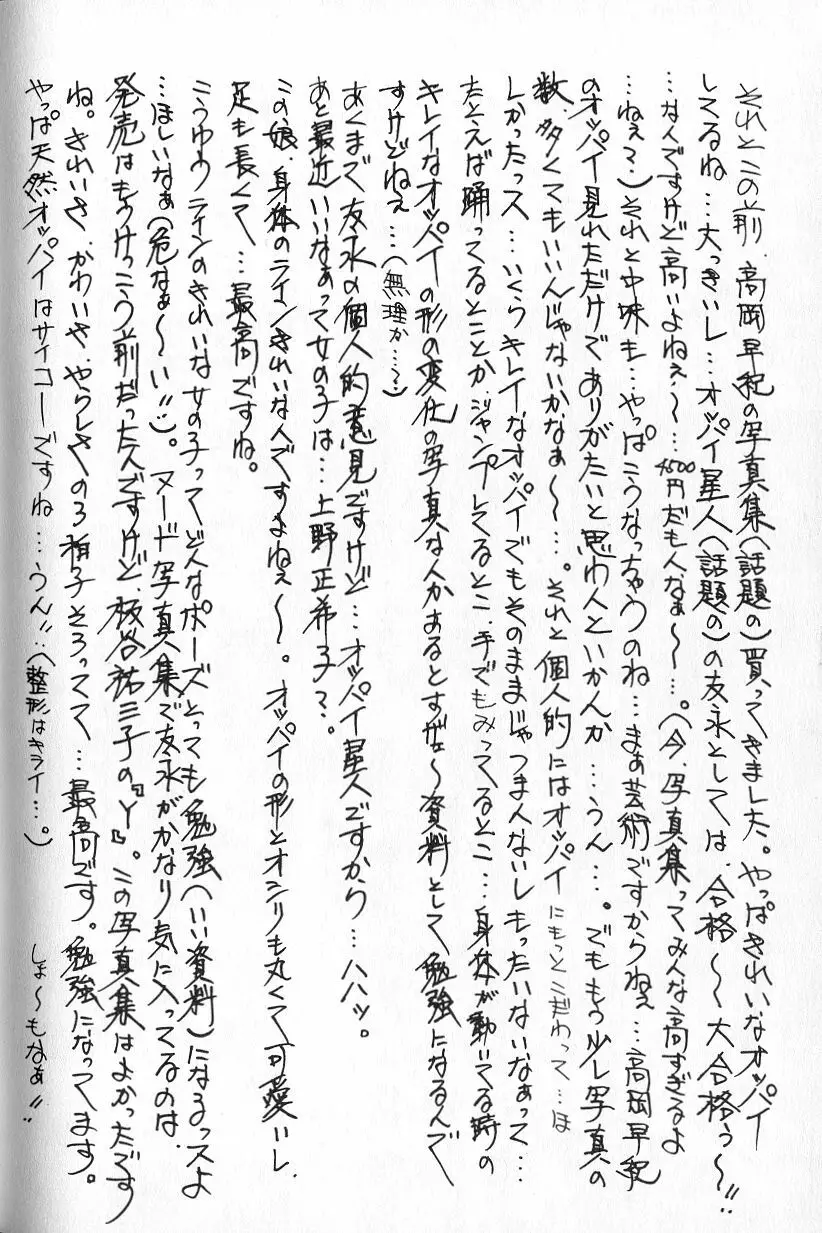 それとこの前、高岡早紀の写真集(話題の)買ってきました。やっぱきれいなオッパイ
してるね…大っきいし…オッパイ星人(話題の)の友永としては、合格～～大合格ぅ～!!
…なんですけど高いよねぇ～…4500円だもんなぁ～～…。(今、写真集ってみんな高すぎるよ
…ねぇ?)それと中味も…やっぱこうなっちゃうのね…まぁ芸術ですからねぇ…高岡早紀
のオッパイ見れただけでありがたいと思わんといかんか…うん…。でももう少し写真の
数、多くてもいいんじゃないかなぁ～～…。それと個人的にはオッパイにもっとこだわって…ほ
しかったっス…いくらキレイなオッパイでもそのままじゃつまんないしもったいないなぁって…
たとえば踊ってるとことか、ジャンプしてるとこ、手でもみってるとこ…身体が動いてる時の
キレイなオッパイの形の変化の写真なんかあるとすげェ～資料として勉強になるんで
すけどねぇ…(無理か…?)
あくまで友永の個人的意見ですけど…オッパイ星人ですから…ハハッ。
あと最近いいなぁって女の子は…上野正希子?。
この娘、身体のラインきれいな人ですよねぇ～～。オッパイの形とオシリも丸くて可愛いし、
足も長くて…最高ですね。
こうゆうラインのきれいな女の子って、どんなポーズとっても勉強(いい資料)になるっスよ
…ほしいなぁ(危なぁ～い!!)。ヌード写真集で友永がかなり気に入ってるのは、
発売はもうけっこう前だったんですけど、板谷祐三子の『Y』。この写真集はよかったです
ね。きれいさ、かわいさ、やらしさの3拍子そろってて…最高です。勉強になってます。
やっぱ天然オッパイはサイコーですね…うん!!(整形はキライ…。)
しょ～もなぁ!!